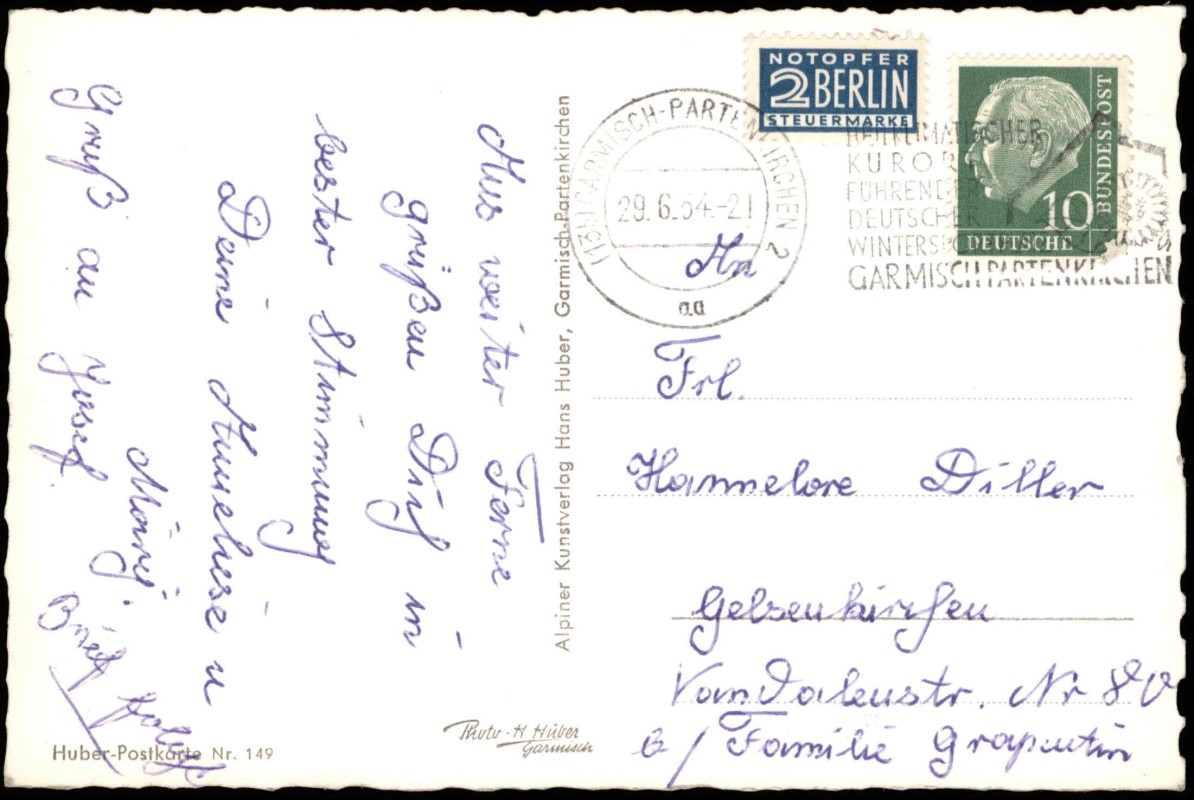 Aus weiter Ferne
grüßen Dich in
bester Stimmung
Deine Anneliese u
Gruß an Josef.
Brief folgt
Alpiner Kunstverlag Hans Huber, Garmisch-Partenkirchen
Huber-Postkarte Nr. 149
Photo-H Huber
Garmisch
NOTOPFER
2 BERLIN
STEUERMARKE
DEUTSCHE
BUNDESPOST
10
(13b) GARMISCH-PARTENKIRCHEN 2
29.6.54-21
aa
HEILKLIMATISCHER
KURORT
FÜHRENDER
DEUTSCHER
WINTERSPORTPLATZ
GARMISCH-PARTENKIRCHEN
An
Frl.
Hannelore Diller
Gelsenkirchen
Vandalenstr. Nr 80
b/ Familie Grapentin